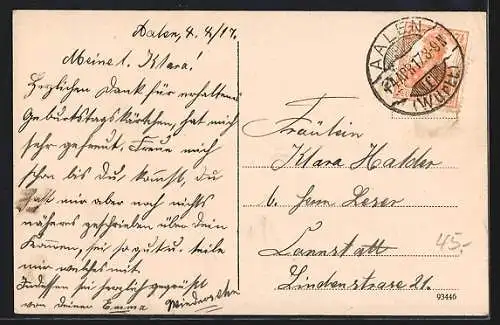 Aalen, 4. 4/17.
Meine l. Klara!
Herzlichen Dank für erhaltene
Geburtstagskärtchen, hat mich
sehr gefreut. Freue mich
schon bis Du kommst, du
hast mir aber noch nichts
näheres geschrieben über dein
Kommen, sei so gut u. teile
mir welches mit.
Indessen sei herzlich gegrüßt
von deiner Emma
Wiedersehn
AALEN
4.APR.17.8-9N.
(WÜRTT.)
Fräulein
Klara Halder
b. Herrn Leser
Cannstatt
Lindenstrasse 21.
45.-
93446